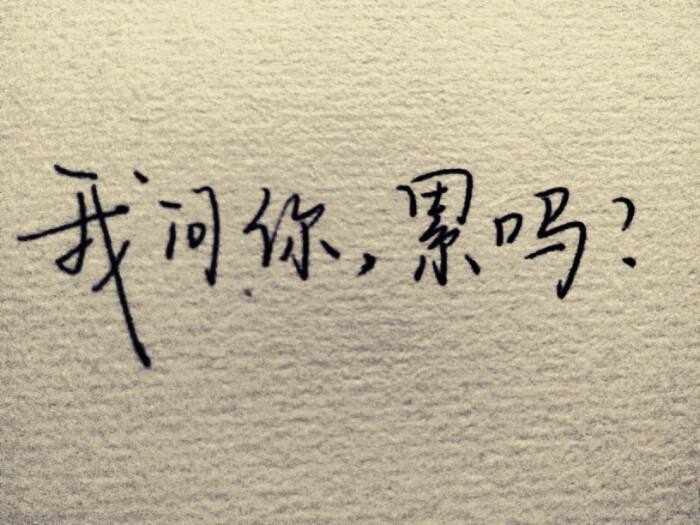 我问你,累吗?